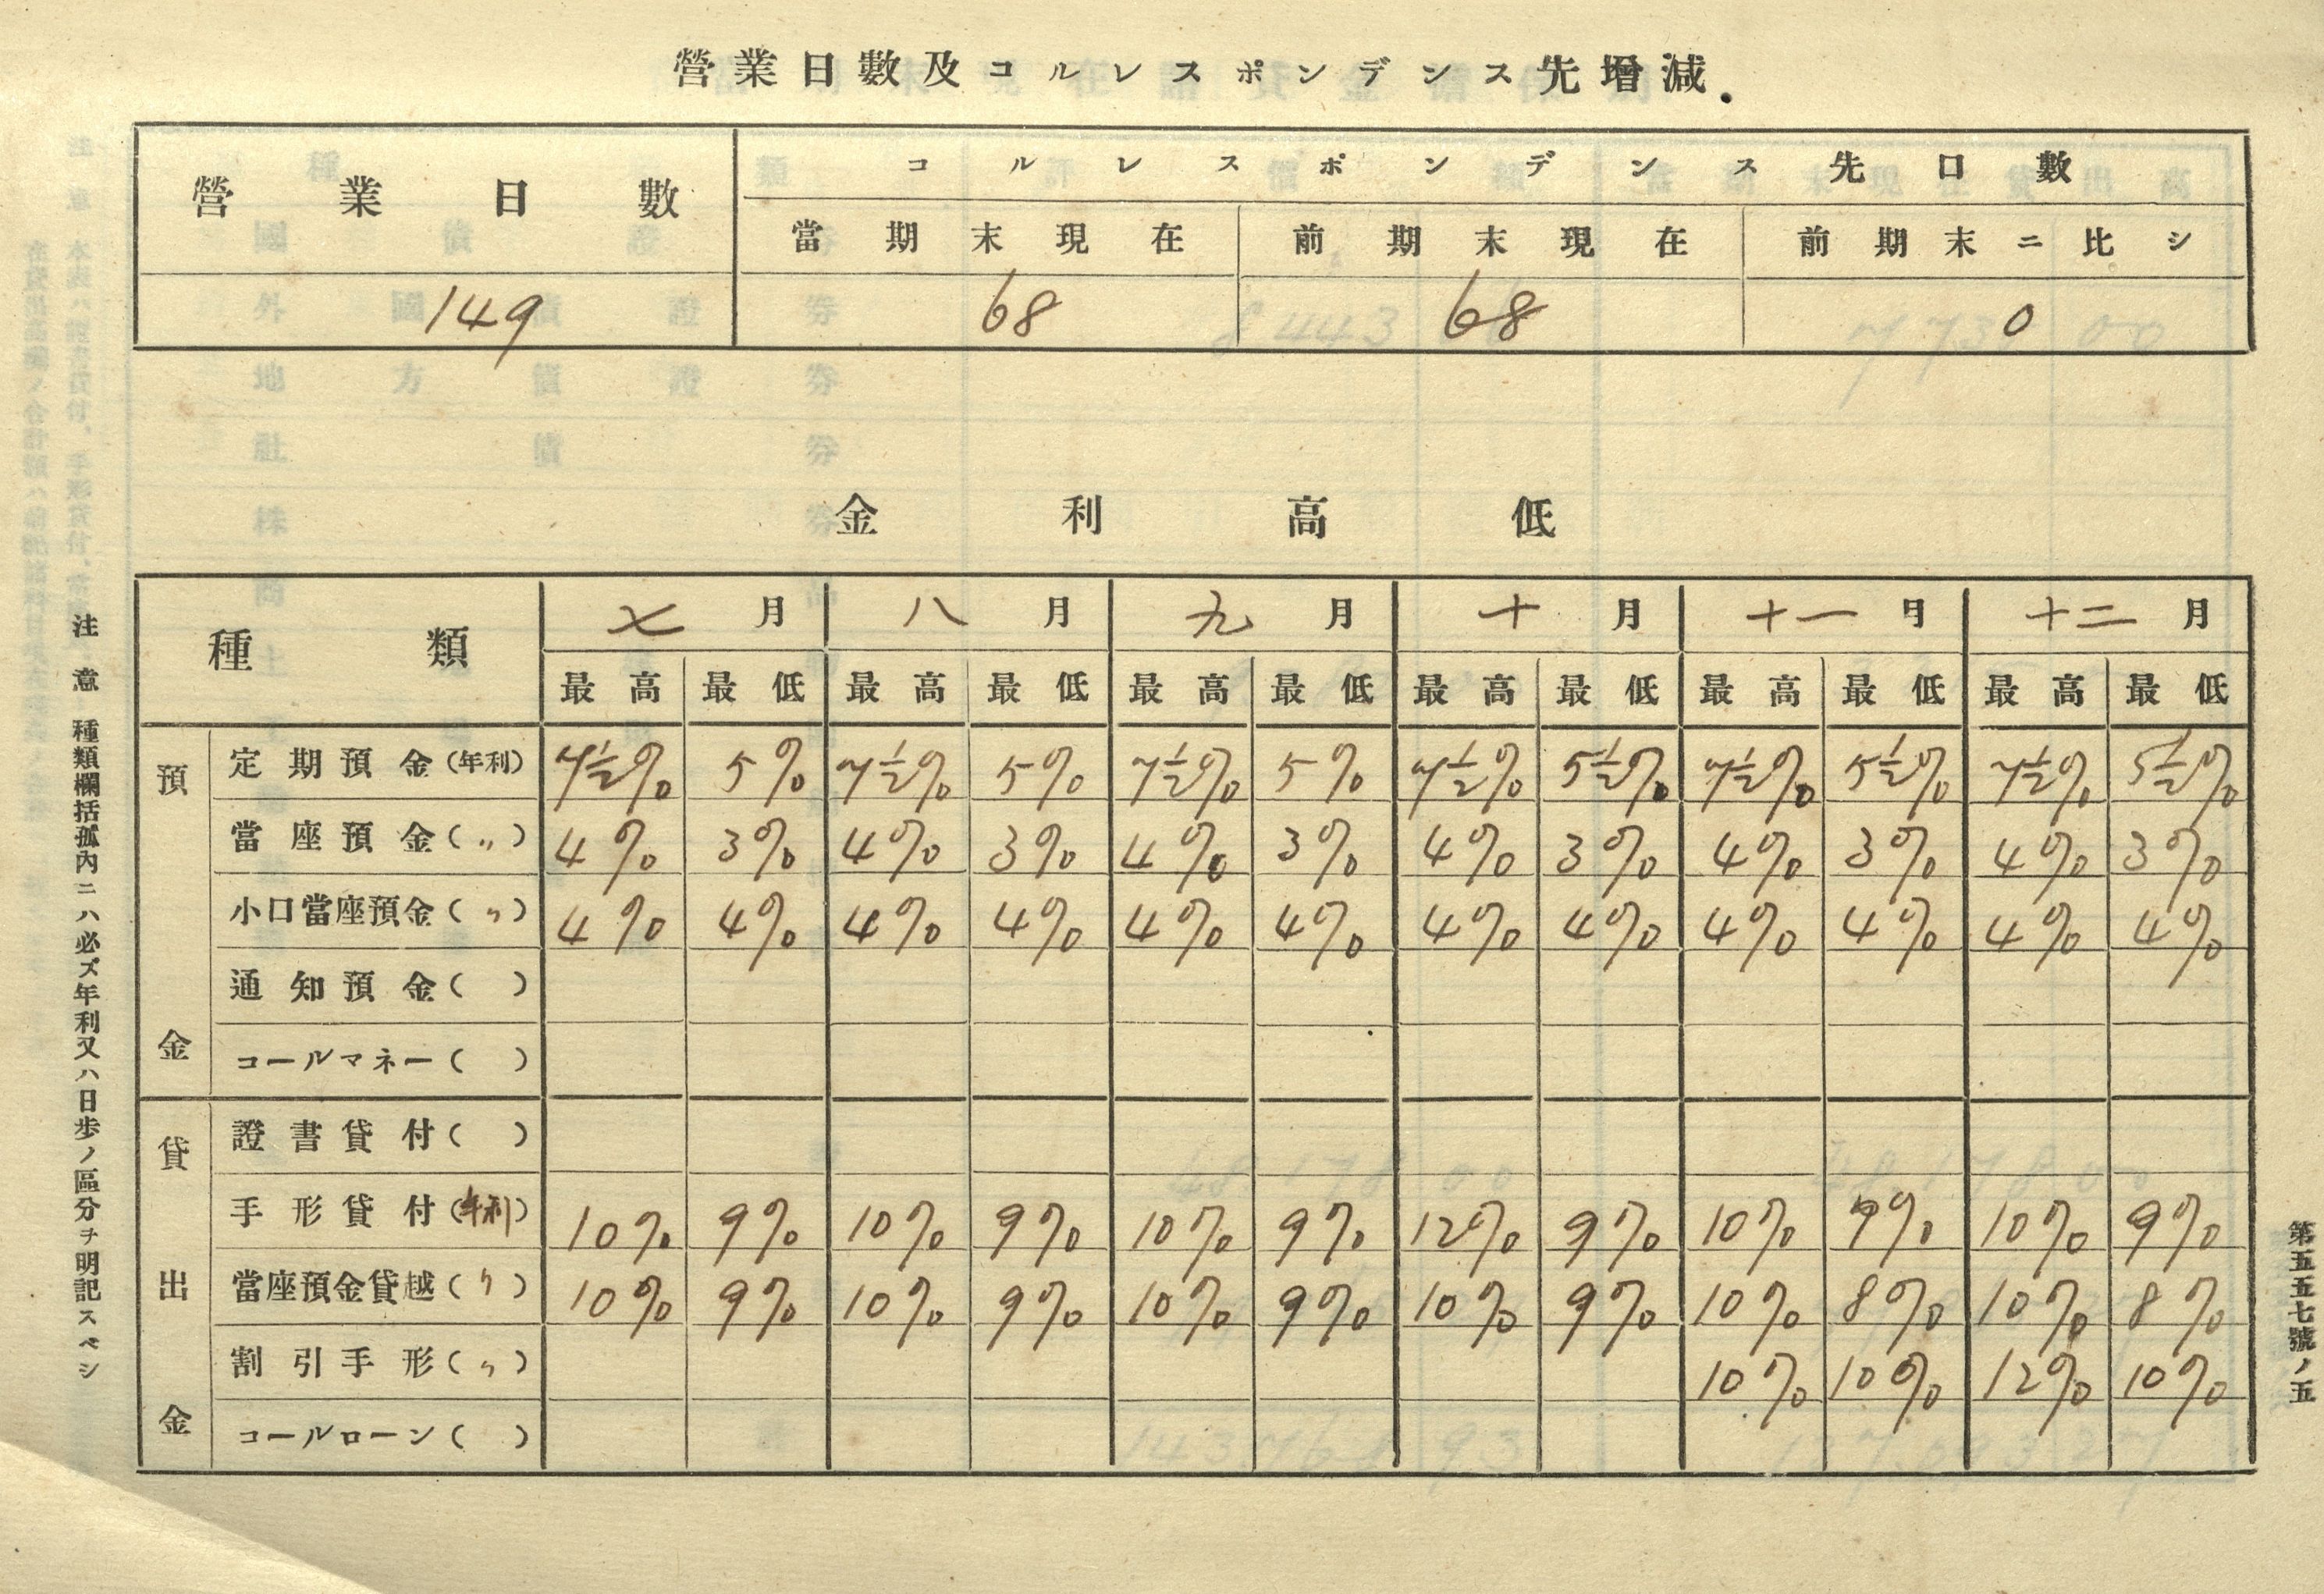 營業日數及コルレスポンデンス先增減.
營業日數 コルレスポンデンス先口數
當期末現在 前期末現在 前期末ニ比シ
149 68 68 0
金利高低
種類 七月 八月 九月 十月 十一月 十二月
最高 最低 最高 最低 最高 最低 最高 最低 最高 最低 最高 最低
預金
定期預金(年利) 7½% 5% 7½% 5% 7½% 5% 7½% 5½% 7½% 5½% 7½% 5½%
當座預金(〃) 4% 3% 4% 3% 4% 3% 4% 3% 4% 3% 4% 3%
小口當座預金(〃) 4% 4% 4% 4% 4% 4% 4% 4% 4% 4% 4% 4%
通知預金( )
コールマネー( )
貸出金
證書貸付( )
手形貸付(年利) 10% 9% 10% 9% 10% 9% 12% 9% 10% 9% 10% 9%
當座預金貸越(〃) 10% 9% 10% 9% 10% 9% 10% 9% 10% 8% 10% 8%
割引手形(〃) 10% 10% 12% 10%
コールローン( )
注意 種類欄括孤內ニハ必ズ年利又ハ日步ノ區分ヲ明記スベシ
第五五七號ノ五